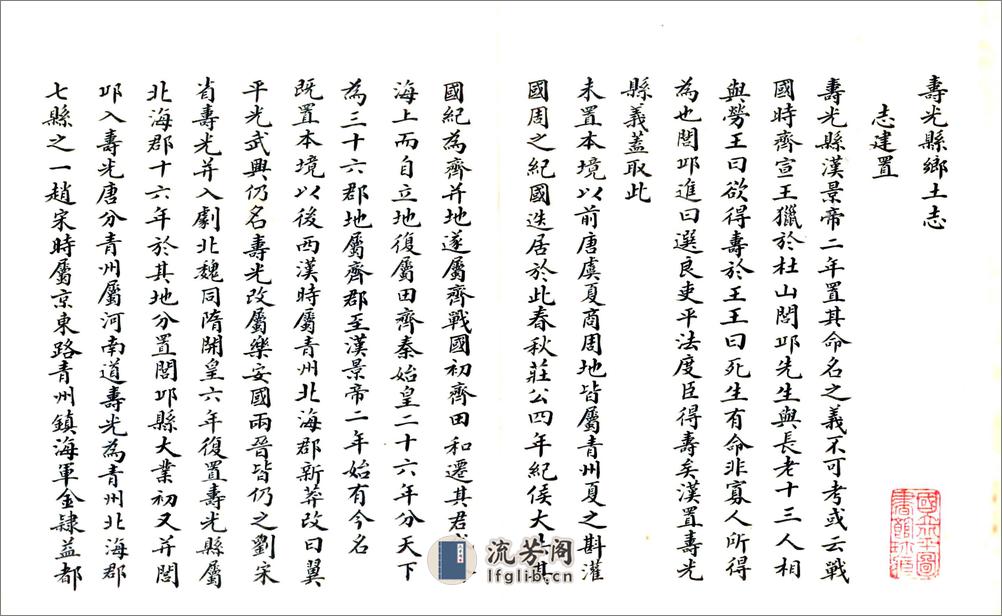 壽光縣鄉土志
志建置
壽光縣漢景帝二年置其命名之義不可考或云戰
國時齊宣王獵於杜山閭邱先生與長老十三人相
與勞王曰欲得壽於王王曰死生有命非寡人所得
為也閭邱進曰選良吏平法度臣得壽矣漢置壽光
縣義蓋取此
未置本境以前唐虞夏商周地皆屬青州夏之斟灌
國周之紀國迭居於此春秋莊公四年紀侯大去其
國紀為齊并地遂屬齊戰國初齊田和遷其君
海上而自立地復屬田齊秦始皇二十六年分天下
為三十六郡地屬齊郡至漢景帝二年始有今名
既置本境以後西漢時屬青州北海郡新莽改曰翼
平光武興仍名壽光改屬樂安國兩晉皆仍之劉宋
省壽光并入劇北魏同隋開皇六年復置壽光縣屬
北海郡十六年於其地分置閭邱縣大業初又并閭
邱入壽光唐分青州屬河南道壽光為青州北海郡
七縣之一趙宋時屬京東路青州鎮海軍金隸益都
流芳阁
lfglib.cn